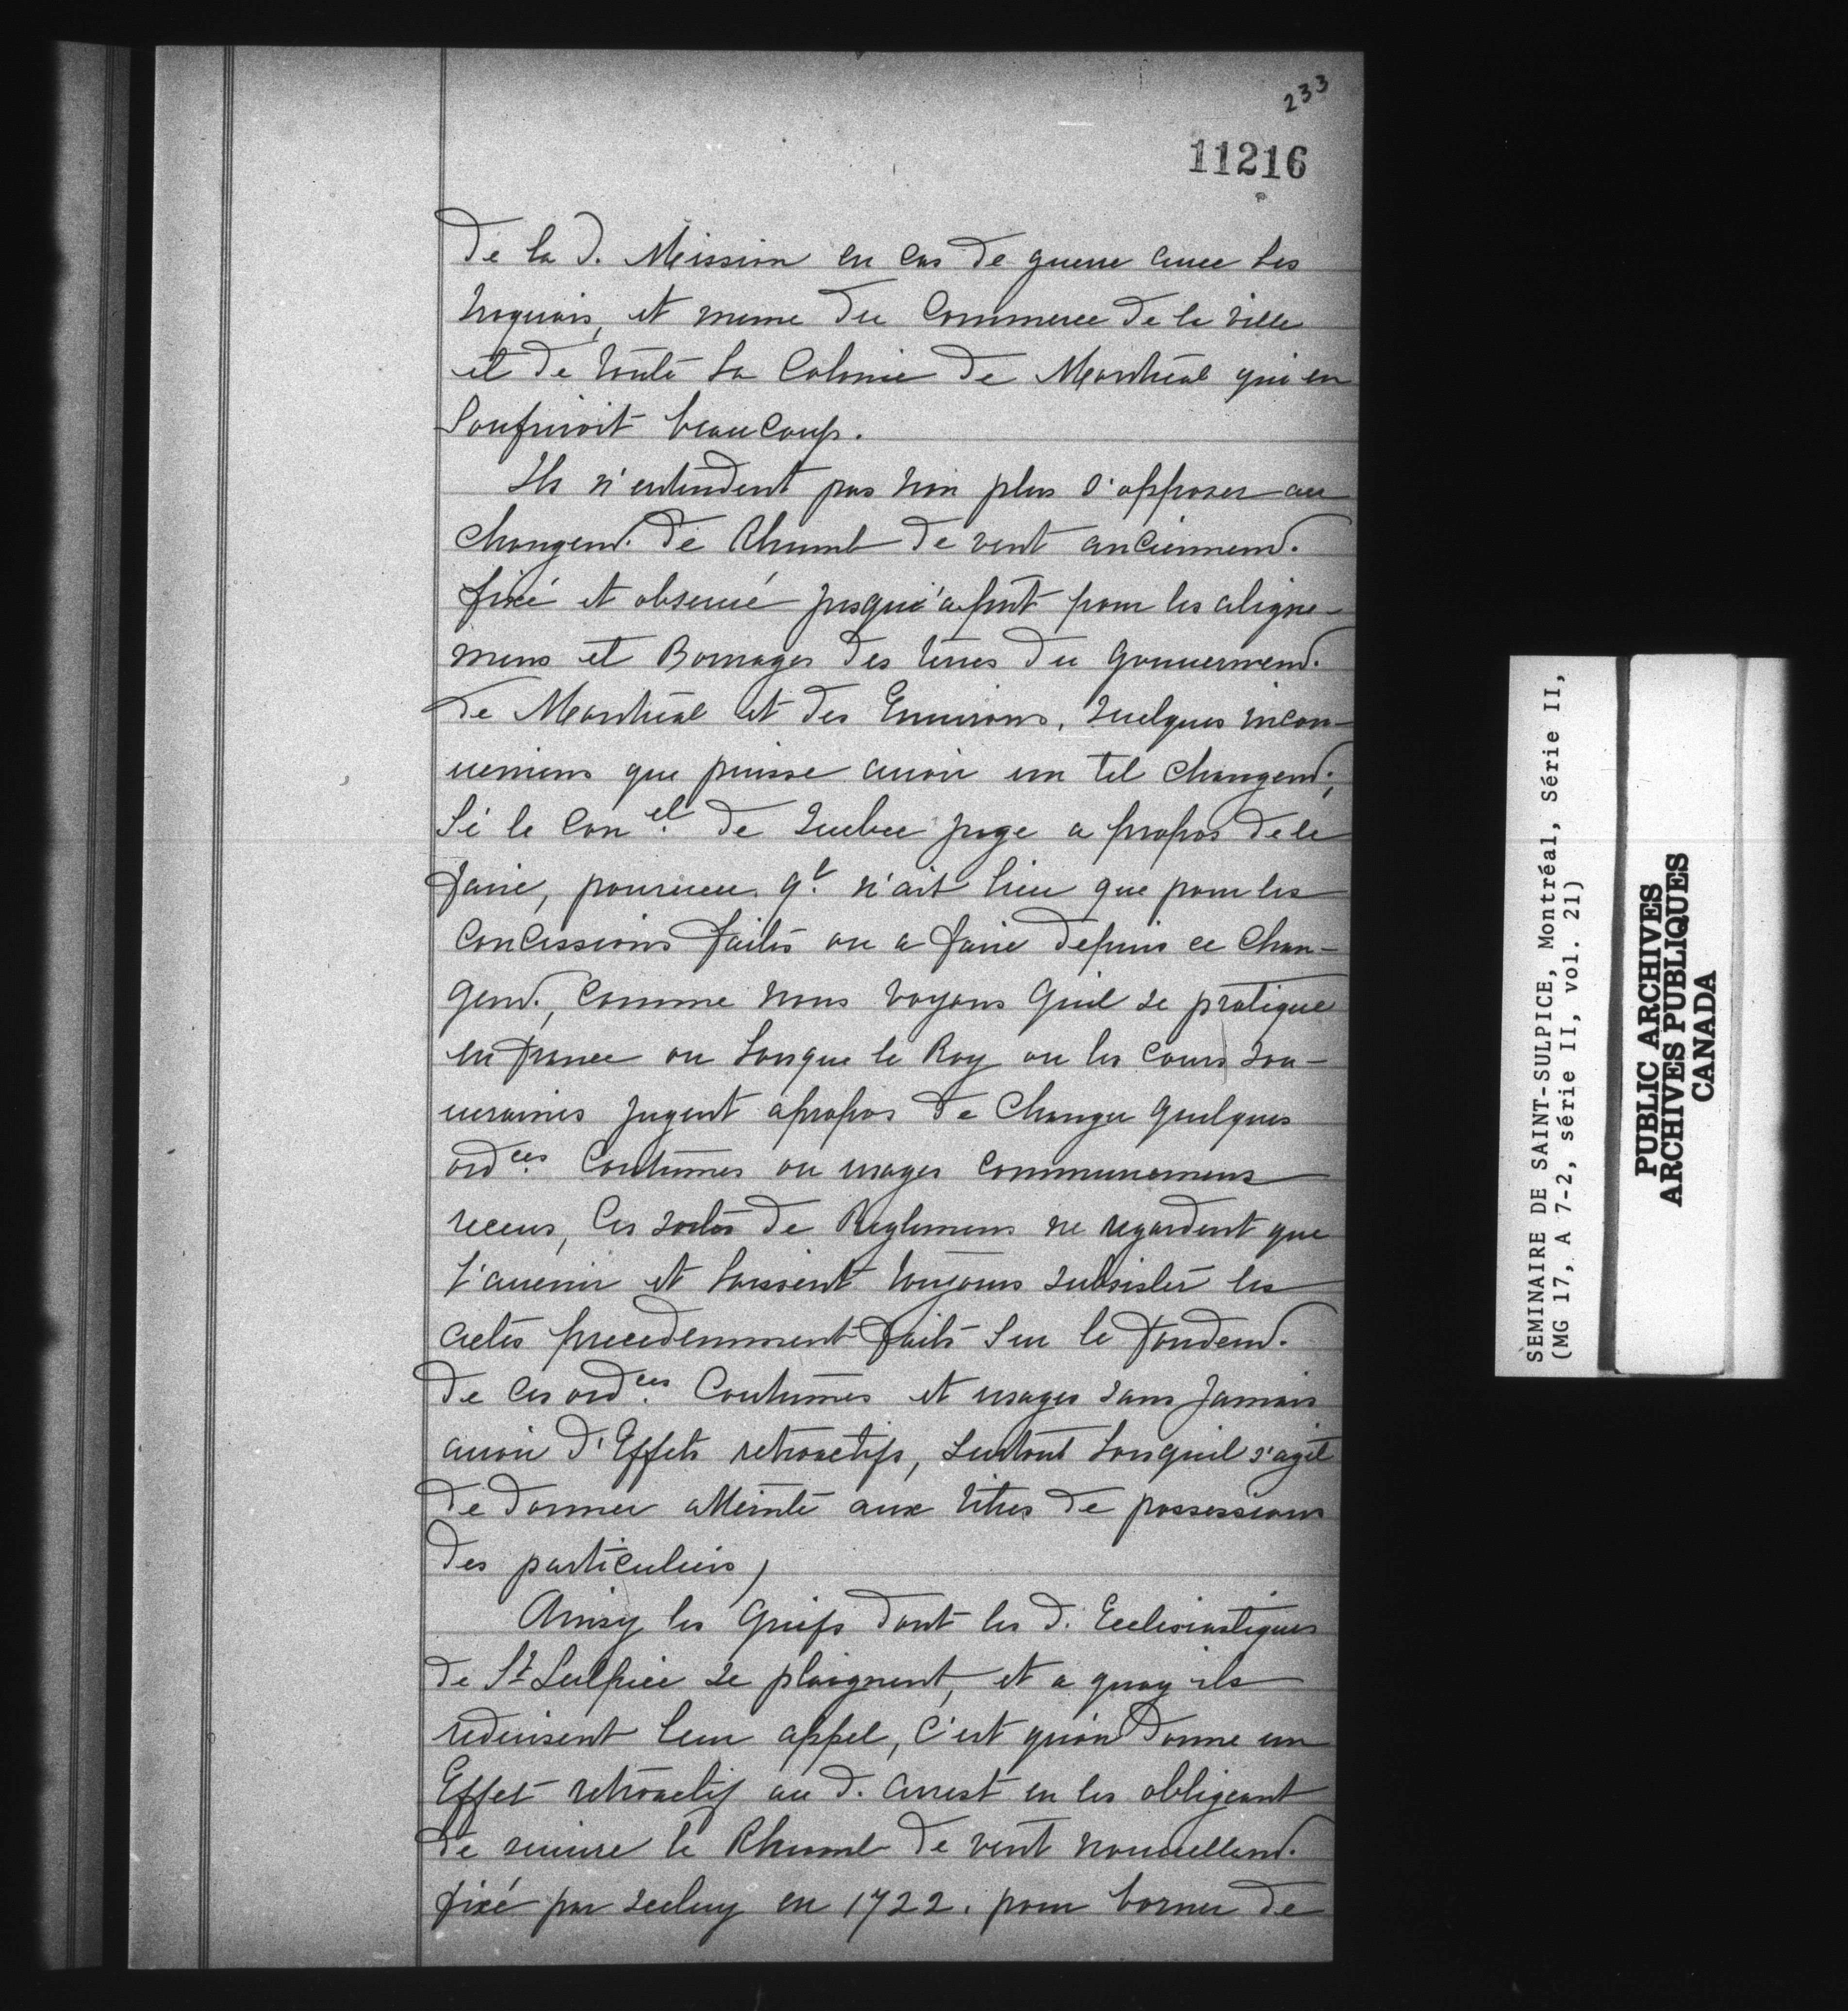 233
11216
de la d. Mission en cas de guerre avec les
Iroquois, et meme du Commerce de la ville
et de toute la Colonie de Montreal qui en
Soufriroit beaucoup.
Ils n'entendent pas non plus s'opposer au
changem.t de Rhumb de vent anciennem.t
fixé et observé jusqu'apnt pour les aligne-
mens et Bornages des terres du gouuernem.t
de Montreal et des Enuirons, quelques incon-
ueniens que puisse auoir un tel changem.t,
Si le Con.el de Quebec juge a propos de le
faire, pourueu q.l n'ait lieu que pour les
Concessions faites ou a faire depuis ce chan-
gem.t, comme nous voyons qu'il se pratique
en france ou lorsque le Roy ou les cours sou-
ueraines jugent apropos de changer quelques
ord.ces Coutumes ou usages communemens
receus, Ces sortes de Reglemens ne regardent que
l'auenir et laissent toujours subsister les
actes precedemment faits Sur le fondem.t
de ces ord.ces Coutumes et usages sans Jamais
auoir d'Effets retroactifs, surtout lorsquil s'agit
de donner atteinte aux titres de possessions
des particuliers,
Ainsy les Griefs dont les d. Ecclesiastiques
de St Sulpice se plaignent, et a quoy ils
reduisent leur appel, C'est qu'on donne un
Effet retroactif au d. arrest en les obligeant
de suiure le Rhumb de vent nouuellem.t
fixé par iceluy en 1722. pour borner de
SEMINAIRE DE SAINT-SULPICE, Montréal, Série II,
(MG 17, A 7-2, série II, vol. 21)
PUBLIC ARCHIVES
ARCHIVES PUBLIQUES
CANADA